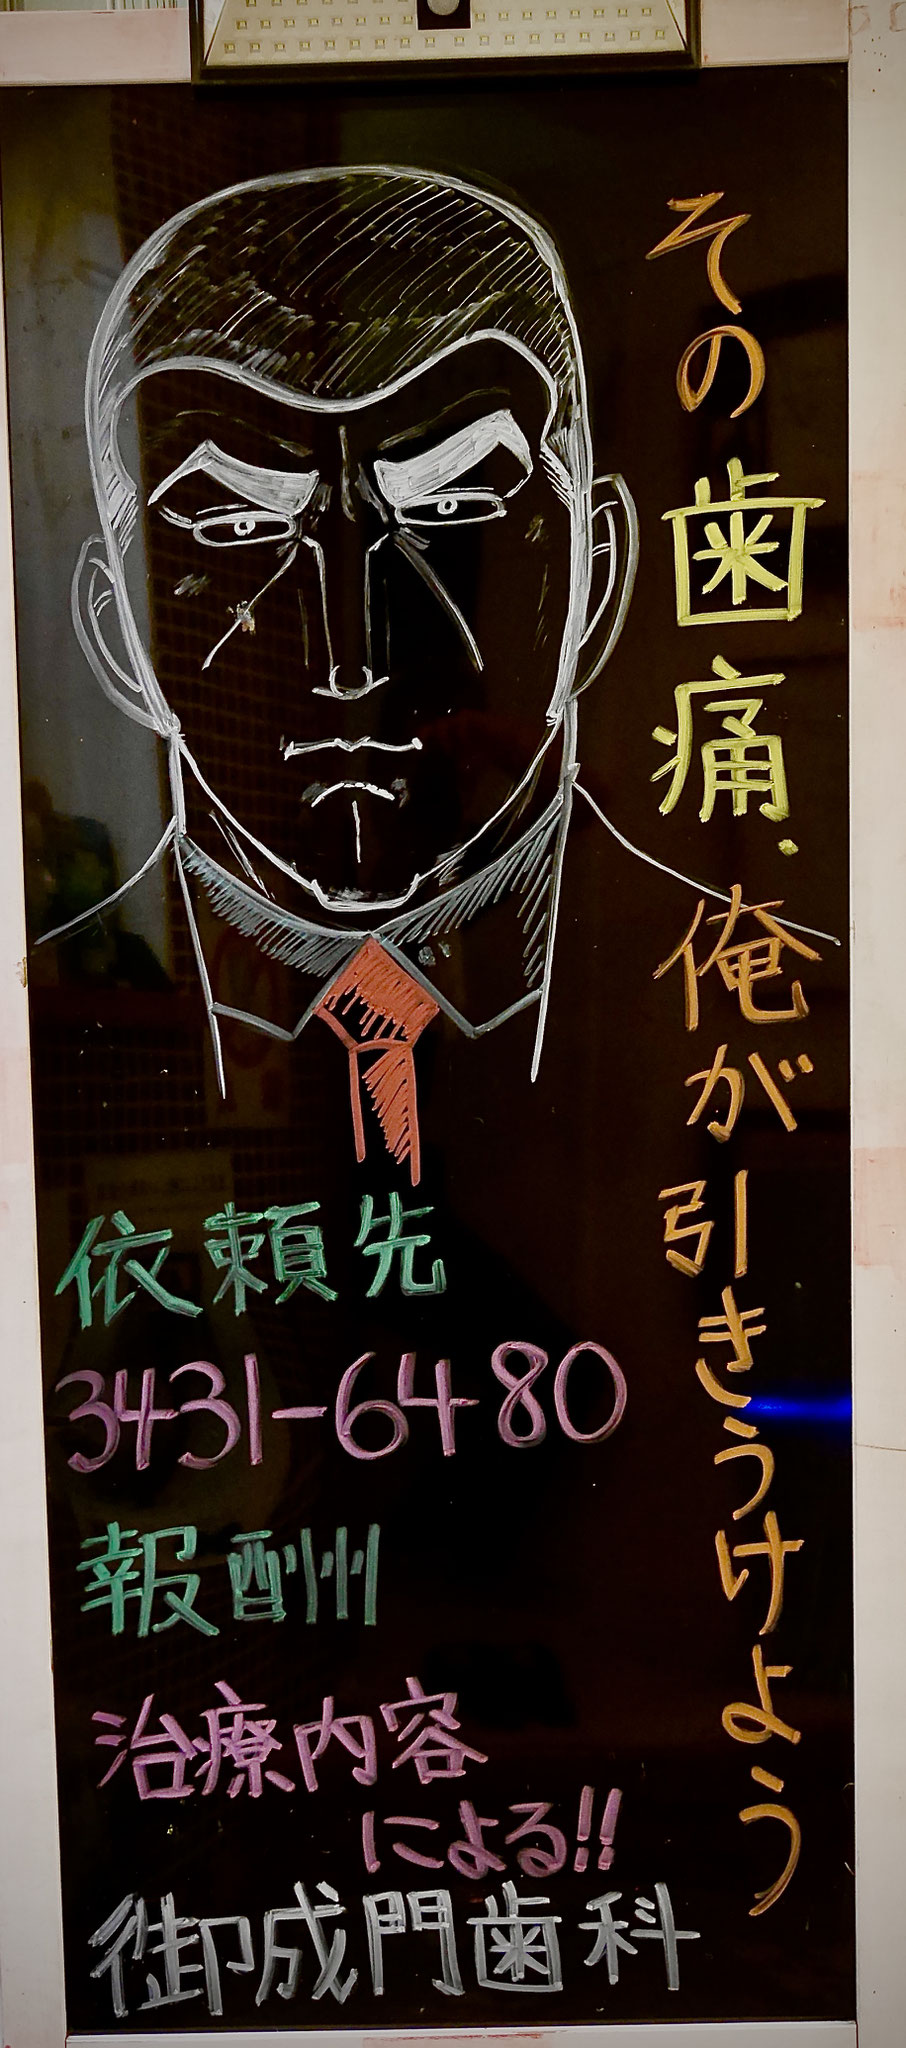 その歯痛.俺が引きうけよう
依頼先
3431-6480
報酬
治療内容
による!!
御成門歯科